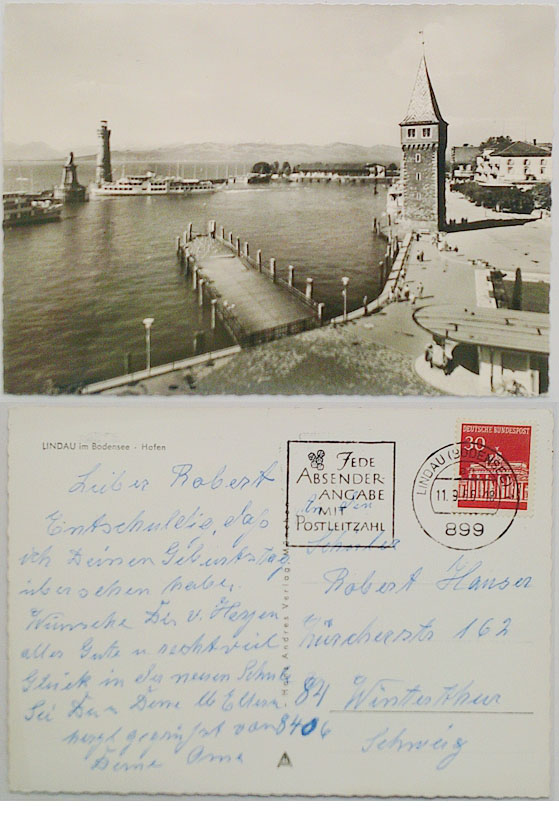 LINDAU im Bodensee - Hafen
JEDE
ABSENDER-
ANGABE
MIT
POSTLEITZAHL
LINDAU (BODENSEE)
11.9.
899
DEUTSCHE BUNDESPOST
30
Lieber Robert
Entschuldige, daß
ich Deinen Geburtstag
übersehen habe.
Wünsche Dir v. Herzen
alles Gute u recht viel
Glück in der neuen Schule
Sei Du u Deine lb Eltern
herzl gegrüßt von
Deine Oma
An den
Schüler
Robert Hauser
Zürcherstr 162
84 Winterthur
8406
Schweiz
Hans Andres Verlag